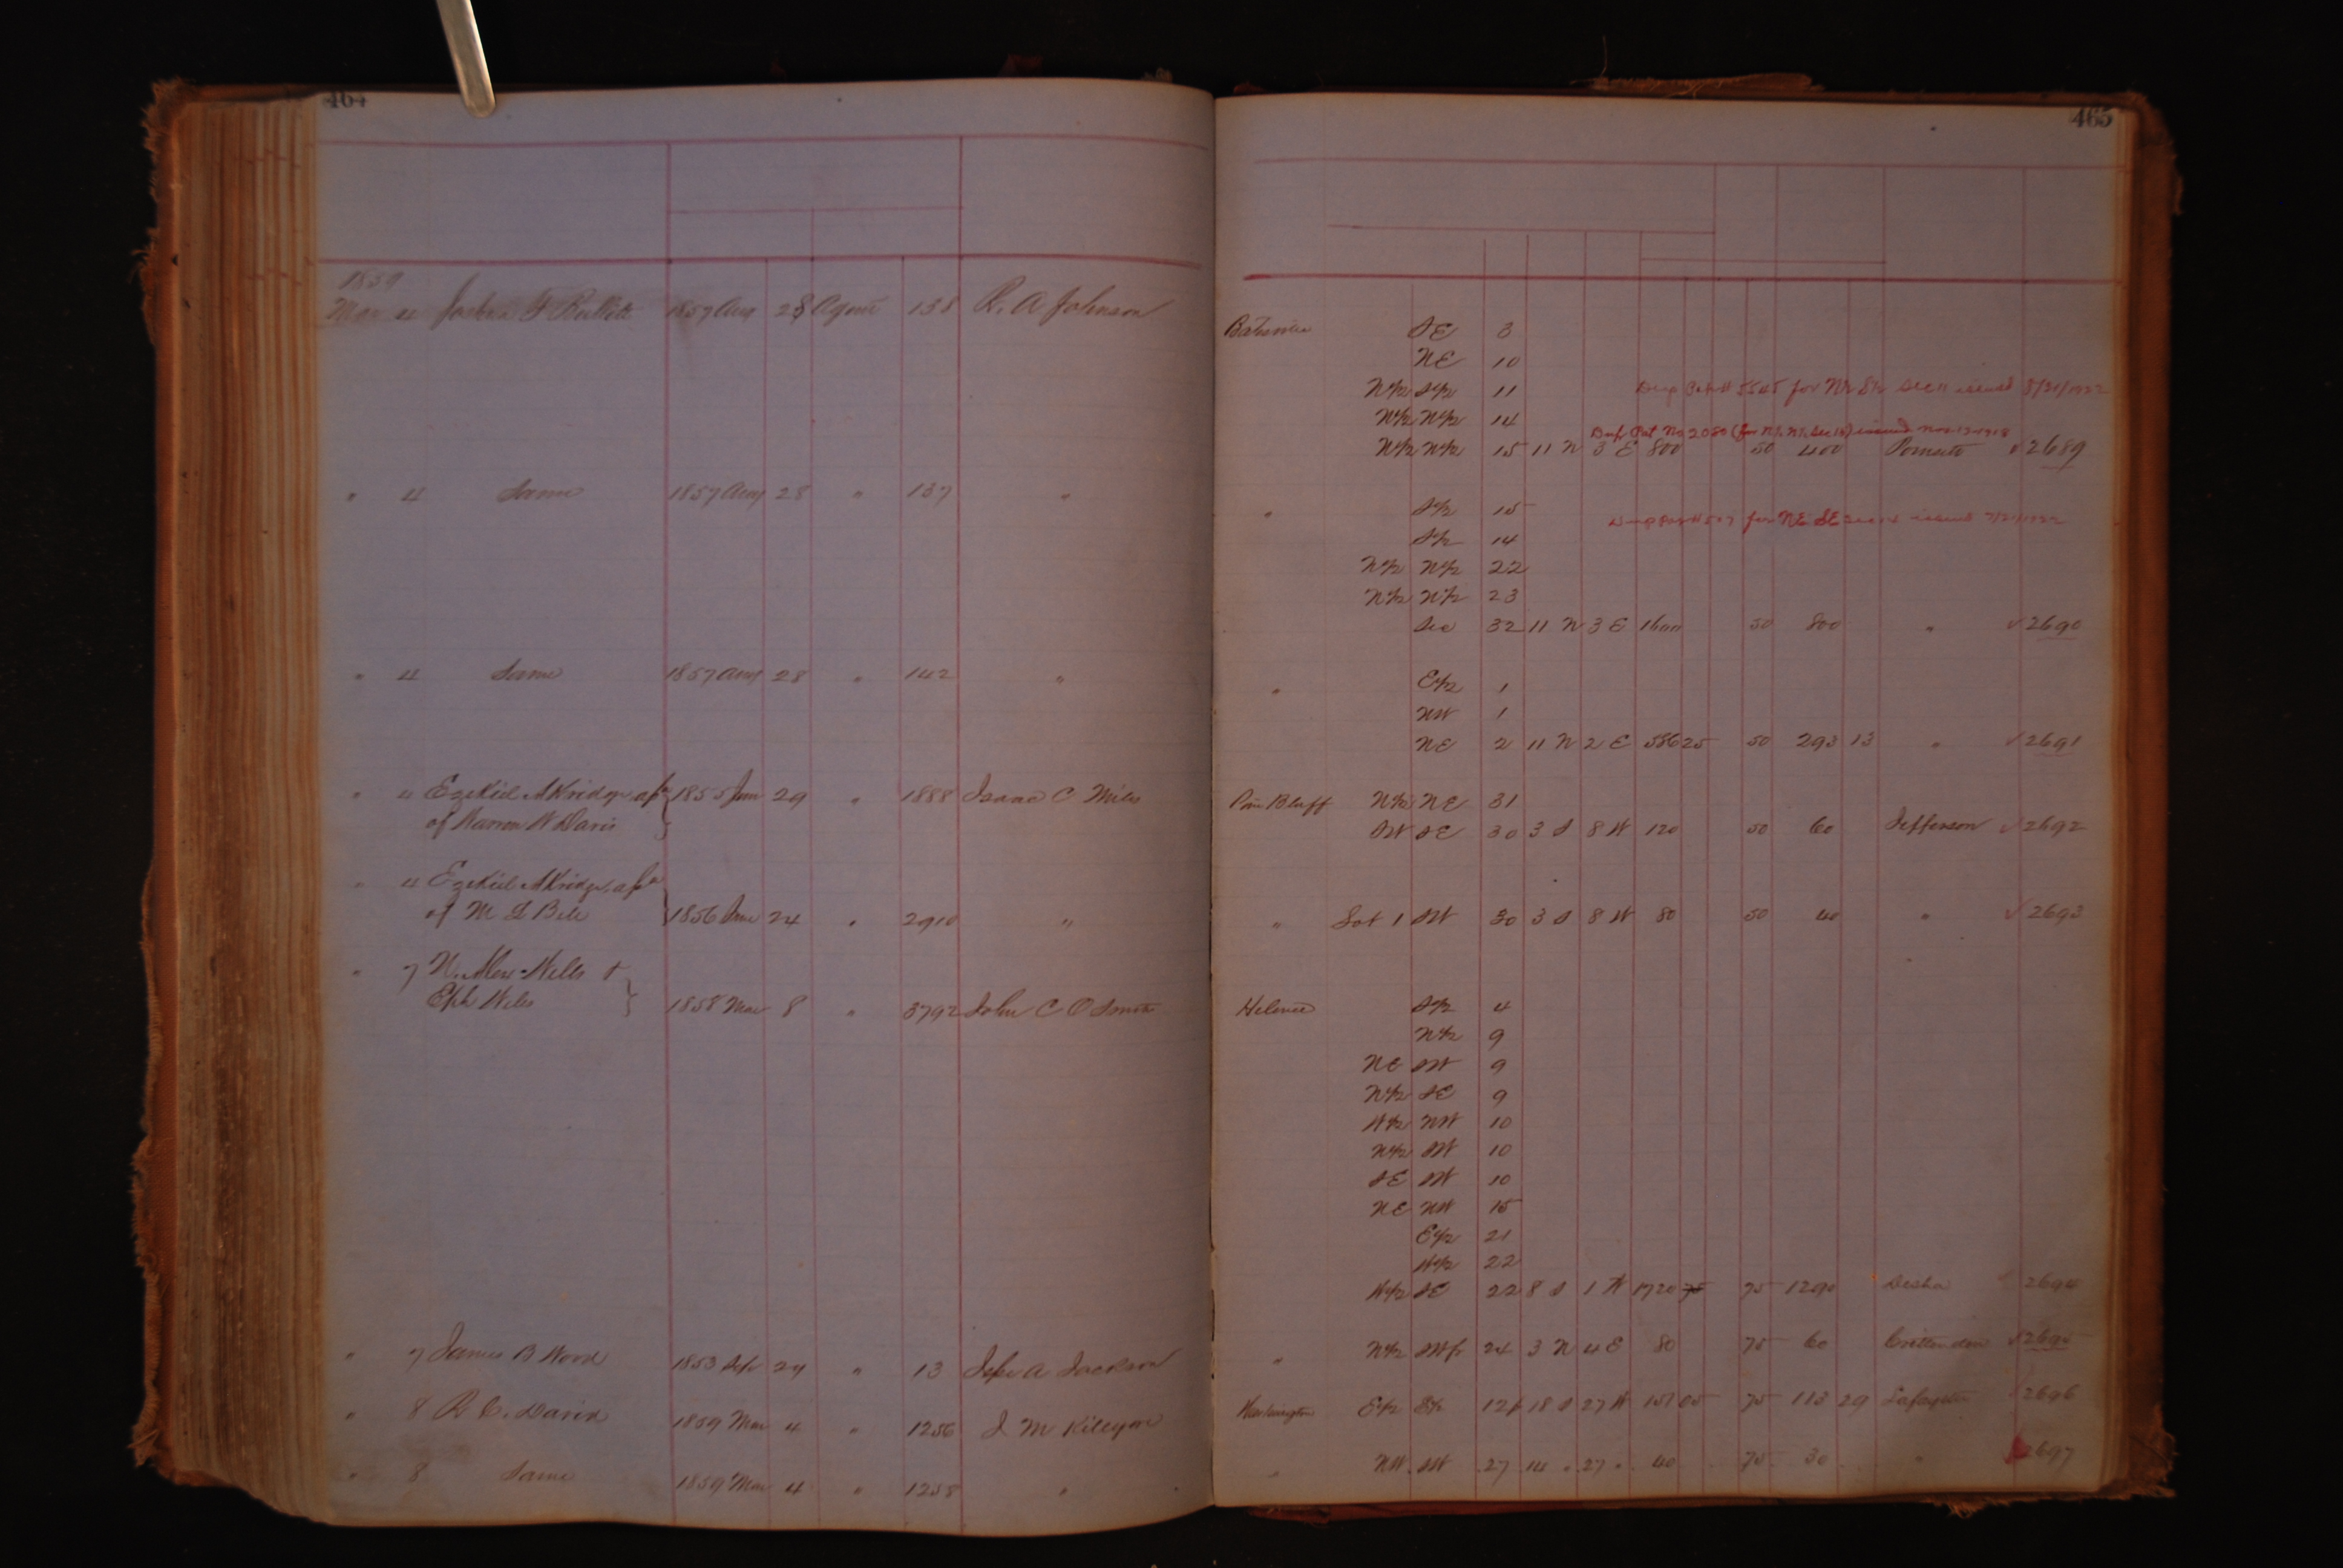 464
1859
Mar 4 Joshua F Bullitt 1857 Aug 28 Agent 138 R. A Johnson
" 4 Same 1857 Aug 28 " 137 "
" 4 Same 1857 Aug 28 " 142 "
" 4 Ezekiel AKridge 1855 29 " 1888 Isaac C Miles
of W Davis
" 4 Ezekiel AKridge
of M L Bell 1856 24 " 2910 "
" 7 Wells &
Eph Wells 1858 Mar 8 " 3792 John C O
" 7 James B Wood 1853 Sep 24 " 13 A Jackson
" 8 R C. David 1859 Mar 4 " 1256 J M
" 8 Same 1859 Mar 4 " 1258 "
465
Batesville SE 3
NE 10
N½ S½ 11 Dup for N½ S½ Sec 11 issued 8/21/1922
N½ N½ 14
Dup Pat No 2080 (for N½ N½ Sec 15) issued Nov 13-1918
N½ N½ 15 11 N 3 E 800 50 400 Poinsett √ 2689
" S½ 15
for NE SE issued
S½ 14
N½ N½ 22
N½ N½ 23
Sec 32 11 N 3 E 1600 50 800 " √ 2690
" E½ 1
NW 1
NE 2 11 N 2 E 586 25 50 293 13 " √ 2691
Pine Bluff N½ NE 31
SW SE 30 3 S 8 W 120 50 60 Jefferson √ 2692
" Lot 1 SW 30 3 S 8 W 80 50 40 " √ 2693
Helena S½ 4
N½ 9
NE SW 9
N½ SE 9
W½ NW 10
N½ SW 10
SE SW 10
NE NW 15
E½ 21
W½ 22
W½ SE 22 8 S 1 W 1720 75 1290 Desha 2694
" N½ SW fr 24 3 N 4 E 80 75 60 Crittenden √ 2695
Washington E½ 12 18 S 27 W 151 05 75 113 29 Lafayette √ 2696
" NW SW 27 14 " 27 " 40 75 30 " √ 2697